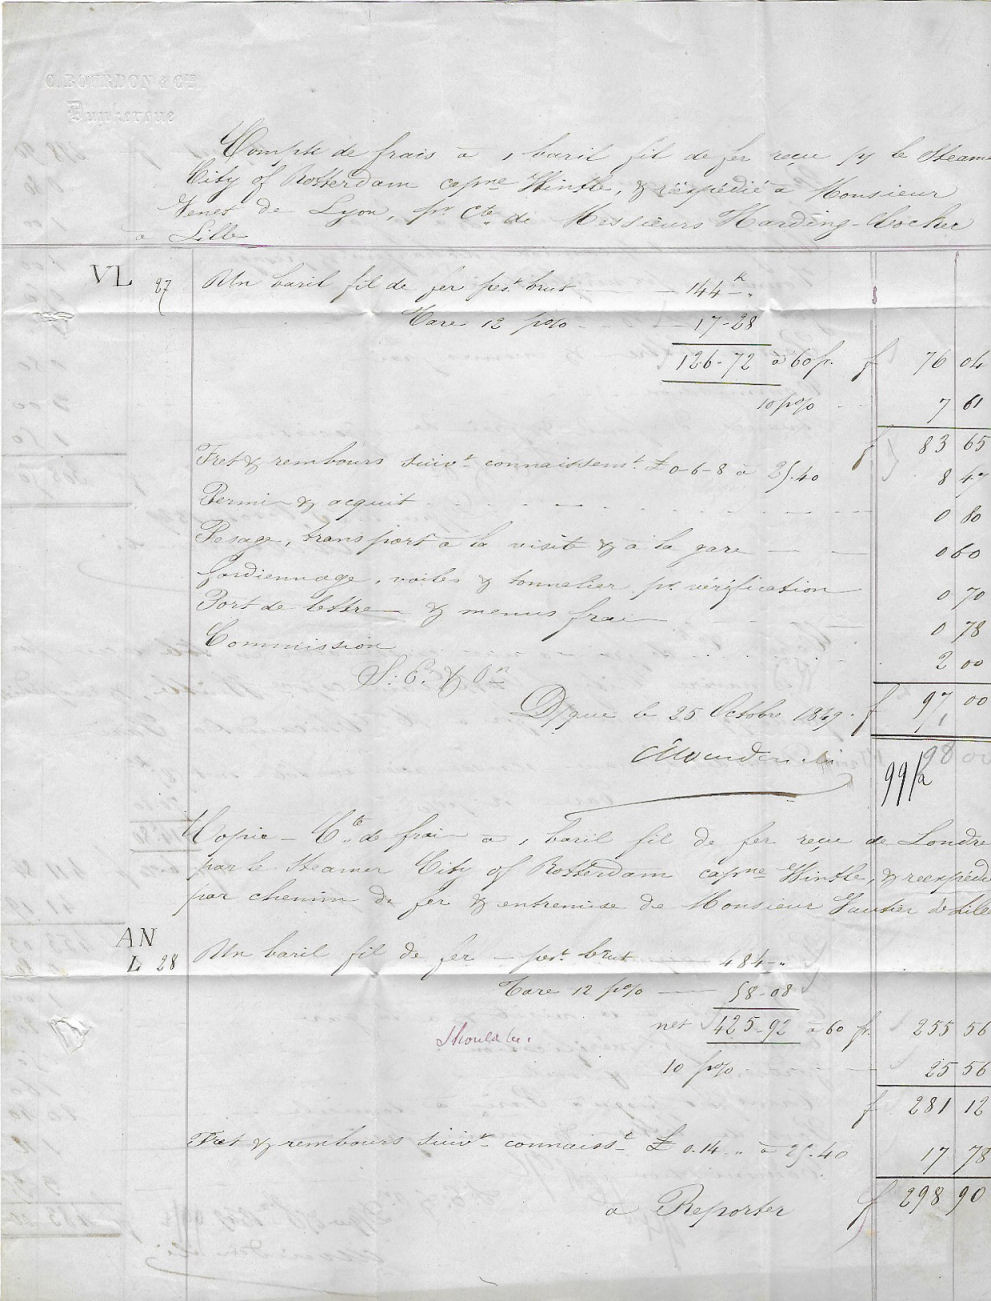 C. BOURDON & Cie
Dunkerque
Compte de frais à 1 baril fil de fer reçu pr le Steam
City of Rotterdam capne Hintle, & réexpédié à Monsieur
Genet de Lyon, pr Cte de Messieurs Harding-Cocker
à Lille
VL 27 Un baril fil de fer pest brut — 144 k
Tare 12 p% — 17-28
126-72 à 60 f. f 76 04
10 p% — 7 61
f 83 65
Fret & rembours suivt connaissemt £ 0-6-8 à 25.40 8 47
Permis & acquit 0 80
Pesage, transport à la visite & à la gare 0 60
Gardiennage, voiles & tonnelier pr vérification 0 70
Port de lettre & menus frais 0 78
Commission 2 00
S. E. & On f 97 00
Dque le 25 Octobre 1849. 1
98 00
99/2
Copie — Cte de frais à 1 baril fil de fer reçu de Londre
par le Steamer City of Rotterdam capne Hintle, & reexpédié
par chemin de fer & entremise de Monsieur Gautier de Lille
AN
L 28 Un baril fil de fer — pest brut 484-"
Tare 12 p% — 58-08
net 425-92 à 60 f. 255 56
Should be.
10 p% — 25 56
f 281 12
Fret & rembours suivt connaisst £ 0.14 " à 25.40 17 78
à Reporter f 298 90